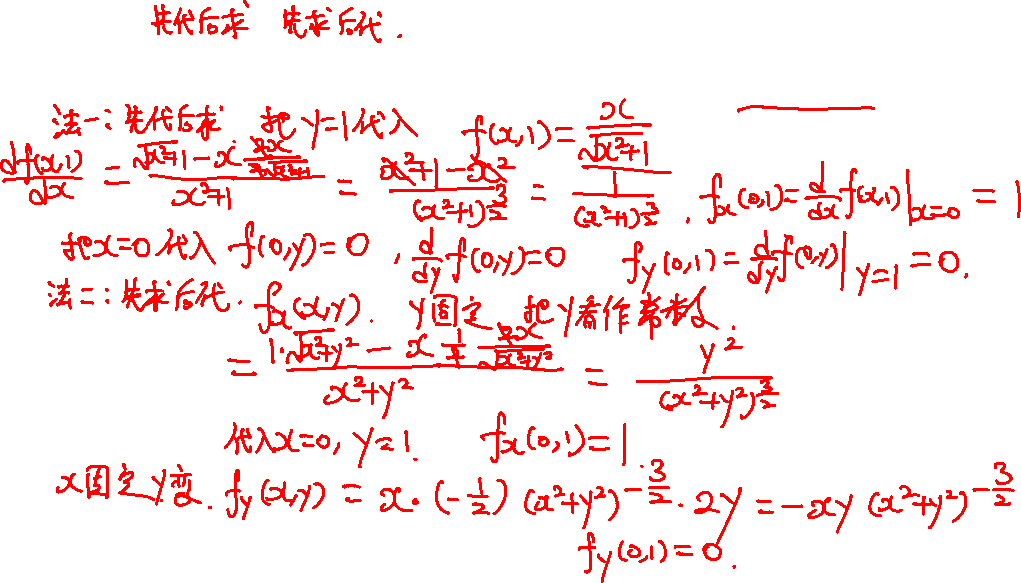 先代后求 先求后代.
法一:先代后求 把y=1代入 f(x,1)=x/√(x²+1)
df(x,1)/dx = (√(x²+1) - x·2x/(2√(x²+1)))/(x²+1) = (x²+1-x²)/(x²+1)^(3/2) = 1/(x²+1)^(3/2), fx(0,1)=d/dx f(x,1)|x=0 = 1
把x=0代入 f(0,y)=0, d/dy f(0,y)=0 fy(0,1)=d/dy f(0,y)|y=1 =0.
法二:先求后代. fx(x,y). y固定 把y看作常数.
= (1·√(x²+y²) - x·1/2·2x/√(x²+y²))/(x²+y²) = y²/(x²+y²)^(3/2)
代入x=0, y=1. fx(0,1)=1.
x固定y变. fy(x,y) = x·(-1/2)(x²+y²)^(-3/2)·2y = -xy(x²+y²)^(-3/2)
fy(0,1)=0.